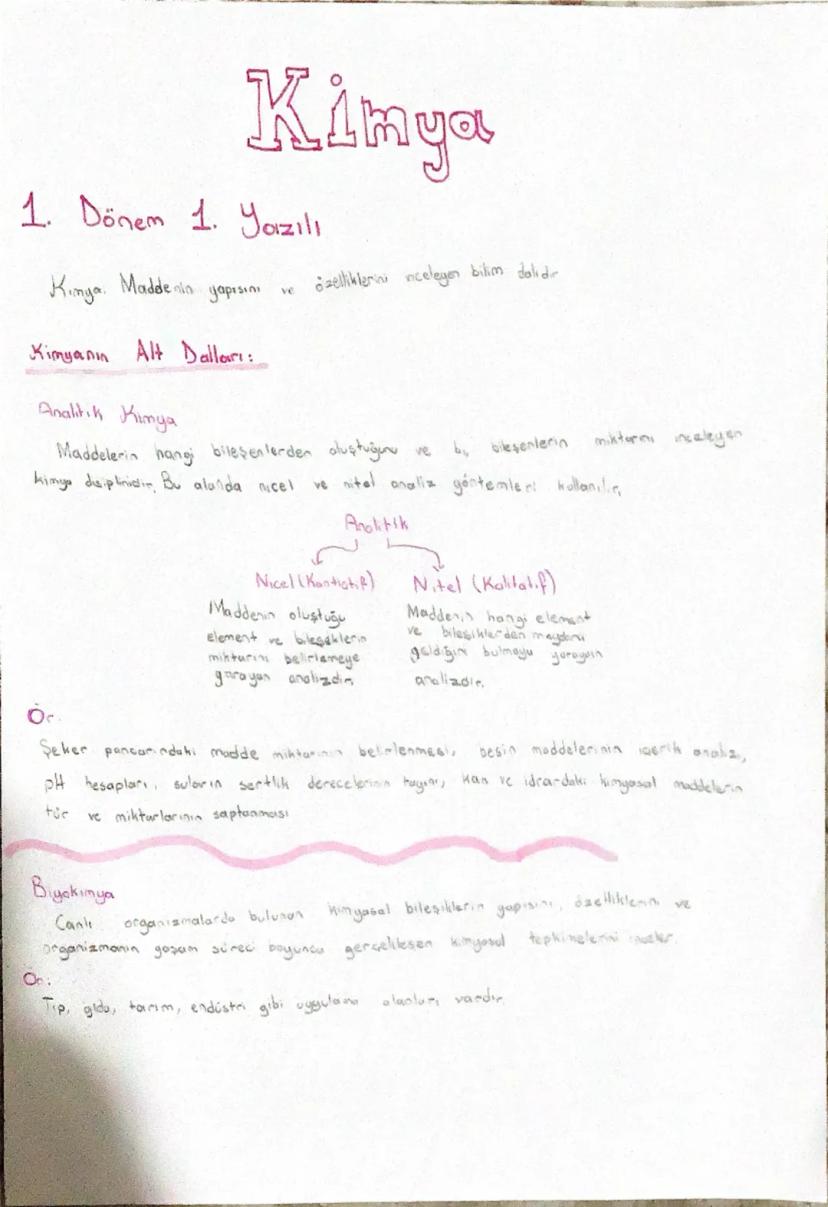 Kimya
1. Dönem 1. Yazılı
Kimya: Maddenin yapısını ve özelliklerini inceleyen bilim dalıdır
Kimyanın Alt Dalları:
Analitik Kimya
Maddelerin hangi bileşenlerden oluştuğunu ve bu bileşenlerin miktarını inceleyen
kimya disiplinidir. Bu alanda nicel ve nitel analiz yöntemleri kullanılır.
Analitik
Nicel (Kantiatif) Nitel (Kalitatif)
Maddenin oluştuğu
element ve bileşiklerin
miktarını belirlemeye
yarayan analizdir.
Maddenin hangi element
ve bileşiklerden meydana
geldiğini bulmaya yarayan
analizdir.
Ör:
Şeker pancarındaki madde miktarının belirlenmesi, besin maddelerinin içerik analizi,
pH hesapları, suların sertlik derecelerinin tayini, kan ve idrardaki kimyasal maddelerin
tür ve miktarlarının saptanması
Biyokimya
Canlı organizmalarda bulunan kimyasal bileşiklerin yapısını, özelliklerini ve
organizmanın yaşam süreci boyunca gerçekleşen kimyasal tepkimelerini inceler.
Ör:
Tıp, gıda, tarım, endüstri gibi uygulama alanları vardır.